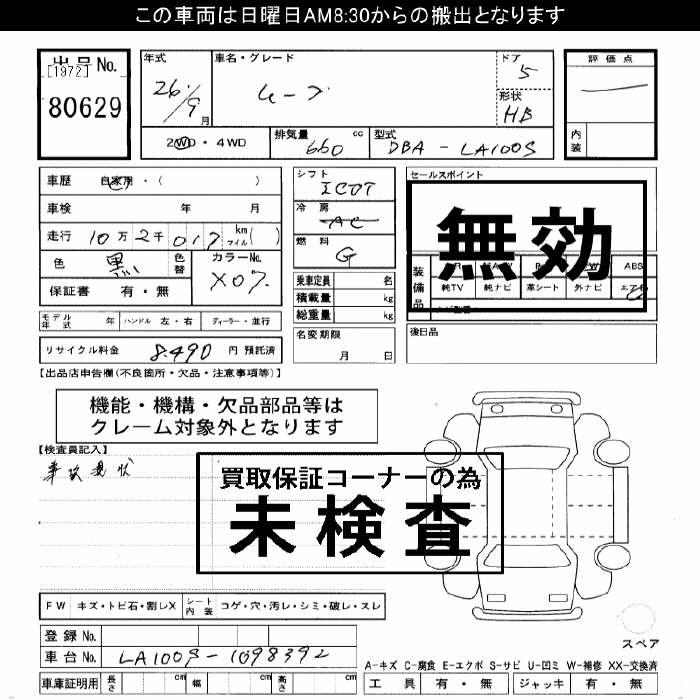 この車両は日曜日AM8:30からの搬出となります
出品No.
[1972]
80629
年式
26/9 月
車名・グレード
ムーブ
ドア
5
形状
HB
評価点
内装
2WD・4WD
排気量 660 cc
型式 DBA-LA100S
車歴 自家用・( )
車検 年 月
走行 10万2千017 km マイル( )
色 黒
色替
カラーNo. X07
保証書 有・無
モデル年式 年
ハンドル 左・右
ディーラー・並行
リサイクル料金 8.490 円 預託済
シフト
ICDT
冷房
AC
燃料
G
乗車定員 名
積載量 kg
総重量 kg
名変期限
月 日
セールスポイント
無効
装備品
ABS
純TV 純ナビ 革シート 外ナビ
後日品
【出品店申告欄(不良箇所・欠品・注意事項等)】
機能・機構・欠品部品等は
クレーム対象外となります
【検査員記入】
事故現状
買取保証コーナーの為
未検査
FW キズ・トビ石・割レX
シート内装 コゲ・穴・汚レ・シミ・破レ・スレ
登録No.
車台No. LA100S-1098392
車庫証明用 長さ cm 幅 cm 高さ cm
スペア
A-キズ C-腐食 E-エクボ S-サビ U-凹ミ W-補修 XX-交換済
工具 有・無 ジャッキ 有・無